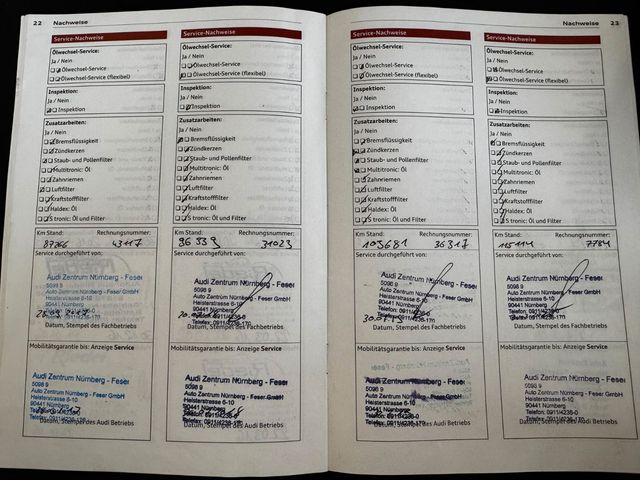 22 Nachweise
Service-Nachweise
Ölwechsel-Service:
Ja / Nein
Ölwechsel-Service
Ölwechsel-Service (flexibel)
Inspektion:
Ja / Nein
Inspektion
Zusatzarbeiten:
Ja / Nein
Bremsflüssigkeit
Zündkerzen
Staub- und Pollenfilter
Multitronic: Öl
Zahnriemen
Luftfilter
Kraftstofffilter
Haldex: Öl
S tronic: Öl und Filter
Km Stand: Rechnungsnummer:
87766 43117
Service durchgeführt von:
Audi Zentrum Nürnberg - Feser
5098 9
Auto Zentrum Nürnberg - Feser GmbH
Heisterstrasse 6-10
90441 Nürnberg
Telefon: 0911/4236-0
Datum, Stempel des Fachbetriebs
Mobilitätsgarantie bis: Anzeige Service
Audi Zentrum Nürnberg - Feser
5098 9
Auto Zentrum Nürnberg - Feser GmbH
Heisterstrasse 6-10
90441 Nürnberg
Datum, Stempel des Audi Betriebs
Service-Nachweise
Ölwechsel-Service:
Ja / Nein
Ölwechsel-Service
Ölwechsel-Service (flexibel)
Inspektion:
Ja / Nein
Inspektion
Zusatzarbeiten:
Ja / Nein
Bremsflüssigkeit
Zündkerzen
Staub- und Pollenfilter
Multitronic: Öl
Zahnriemen
Luftfilter
Kraftstofffilter
Haldex: Öl
S tronic: Öl und Filter
Km Stand: Rechnungsnummer:
96539 31023
Service durchgeführt von:
Audi Zentrum Nürnberg - Feser
5098 9
Auto Zentrum Nürnberg - Feser GmbH
Heisterstrasse 6-10
90441 Nürnberg
Telefon: 0911/4236-0
Datum, Stempel des Fachbetriebs
Mobilitätsgarantie bis: Anzeige Service
Audi Zentrum Nürnberg - Feser
5098 9
Auto Zentrum Nürnberg - Feser GmbH
Heisterstrasse 6-10
90441 Nürnberg
Telefon: 0911/4236-0
Datum, Stempel des Audi Betriebs
Nachweise 23
Service-Nachweise
Ölwechsel-Service:
Ja / Nein
Ölwechsel-Service
Ölwechsel-Service (flexibel)
Inspektion:
Ja / Nein
Inspektion
Zusatzarbeiten:
Ja / Nein
Bremsflüssigkeit
Zündkerzen
Staub- und Pollenfilter
Multitronic: Öl
Zahnriemen
Luftfilter
Kraftstofffilter
Haldex: Öl
S tronic: Öl und Filter
Km Stand: Rechnungsnummer:
103681 36317
Service durchgeführt von:
Audi Zentrum Nürnberg - Feser
5098 9
Auto Zentrum Nürnberg - Feser GmbH
Heisterstrasse 6-10
90441 Nürnberg
Telefon: 0911/4236-0
Datum, Stempel des Fachbetriebs
Mobilitätsgarantie bis: Anzeige Service
Audi Zentrum Nürnberg - Feser
5098 9
Auto Zentrum Nürnberg - Feser GmbH
Heisterstrasse 6-10
90441 Nürnberg
Telefon: 0911/4236-0
Datum, Stempel des Audi Betriebs
Service-Nachweise
Ölwechsel-Service:
Ja / Nein
Ölwechsel-Service
Ölwechsel-Service (flexibel)
Inspektion:
Ja / Nein
Inspektion
Zusatzarbeiten:
Ja / Nein
Bremsflüssigkeit
Zündkerzen
Staub- und Pollenfilter
Multitronic: Öl
Zahnriemen
Luftfilter
Kraftstofffilter
Haldex: Öl
S tronic: Öl und Filter
Km Stand: Rechnungsnummer:
115114 7784
Service durchgeführt von:
Audi Zentrum Nürnberg - Feser
5098 9
Auto Zentrum Nürnberg - Feser GmbH
Heisterstrasse 6-10
90441 Nürnberg
Telefon: 0911/4236-0
Datum, Stempel des Fachbetriebs
Mobilitätsgarantie bis: Anzeige Service
Audi Zentrum Nürnberg - Feser
5098 9
Auto Zentrum Nürnberg - Feser GmbH
Heisterstrasse 6-10
90441 Nürnberg
Telefon: 0911/4236-0
Datum, Stempel des Audi Betriebs